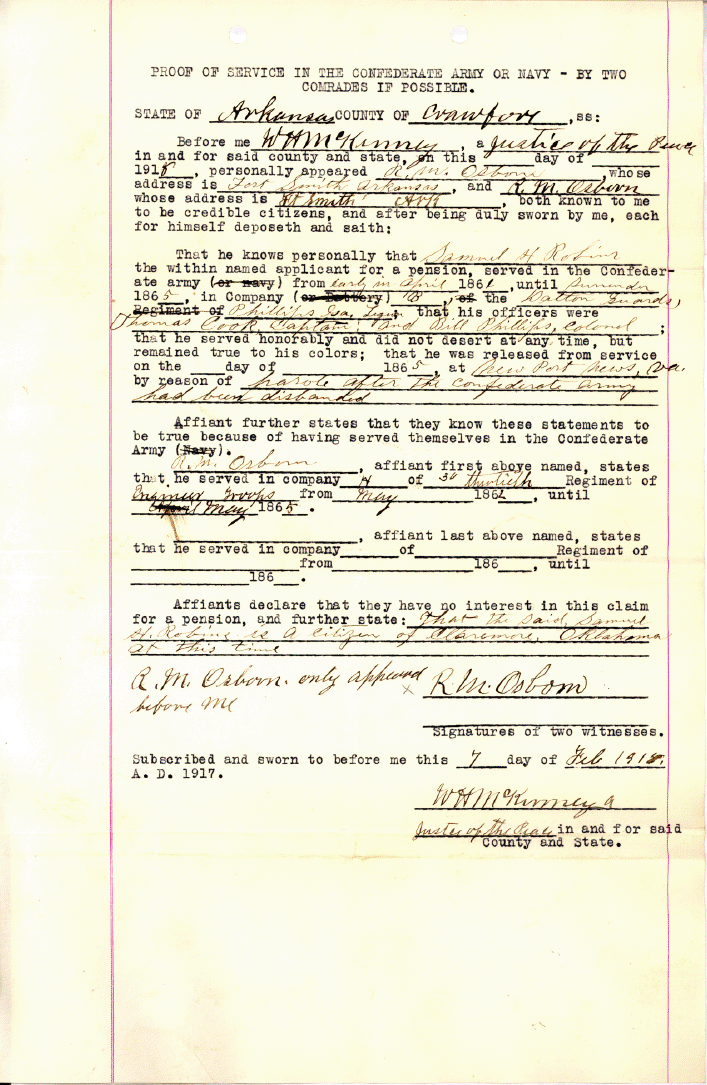 PROOF OF SERVICE IN THE CONFEDERATE ARMY OR NAVY - BY TWO
COMRADES IF POSSIBLE.
STATE OF Arkansas COUNTY OF Crawford ,ss:
Before me W H McKinney , a Justice of the Peace
in and for said county and state, on this ____ day of
1918 , personally appeared R. M. Osborn , whose
address is Fort Smith Arkansas , and R. M. Osborn
whose address is Ft Smith Ark , both known to me
to be credible citizens, and after being duly sworn by me, each
for himself deposeth and saith:
That he knows personally that Samuel H Robins
the within named applicant for a pension, served in the Confeder-
ate army (or navy) from early in April 1861 ,until Surrender
1865 , in Company (or Battery) B , of the Guards,
Regiment of Phillips Ga. Legn. that his officers were
Thomas Cook, Captain, and Bill Phillips, colonel ;
that he served honorably and did not desert at any time, but
remained true to his colors; that he was released from service
on the ____ day of ________ 1865 , at New Port News, Va.
by reason of parole after the Confederate Army
had been disbanded
Affiant further states that they know these statements to
be true because of having served themselves in the Confederate
Army (Navy).
R. M. Osborn , affiant first above named, states
that he served in company of 30 thirtieth Regiment of
Engineer Troops from May 186 , until
April May 1865 .
________ , affiant last above named, states
that he served in company ________ of ________ Regiment of
________ from ________ 186__ , until
________ 186__ .
Affiants declare that they have no interest in this claim
for a pension, and further state: That the said Samuel
H. Robins is a citizen of Claremore, Oklahoma
at this time
R. M. Osborn. only appeared
before me
x R M. Osborn
Signatures of two witnesses.
Subscribed and sworn to before me this 7 day of Feb 1918.
A. D. 1917.
W H McKinney a
Justice of the Peace in and for said
County and State.